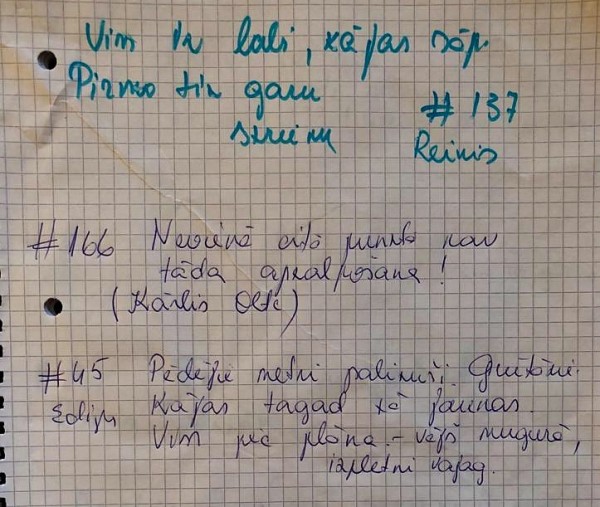 Viss ir labi, kājas sāp.
Pirmo tik garu
skrienu
# 137
Reinis
#166 Nevienā citā punktā nav
tāda apkalpošana!
(Kārlis
#45 Pēdējie metri palikuši.
Kājas tagad kā jaunas.
Viss pēc plāna - vējš mugurā,
izpletni vajag.